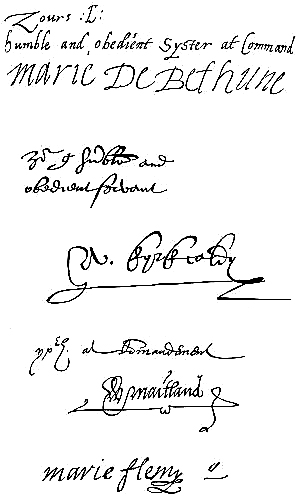 Zours :L:
humble and obedient Syster at Command
marie De Bethune
Zor L humble and
obedient servant
W. kyrkcaldy
at Comandement
W maitland
marie flemy